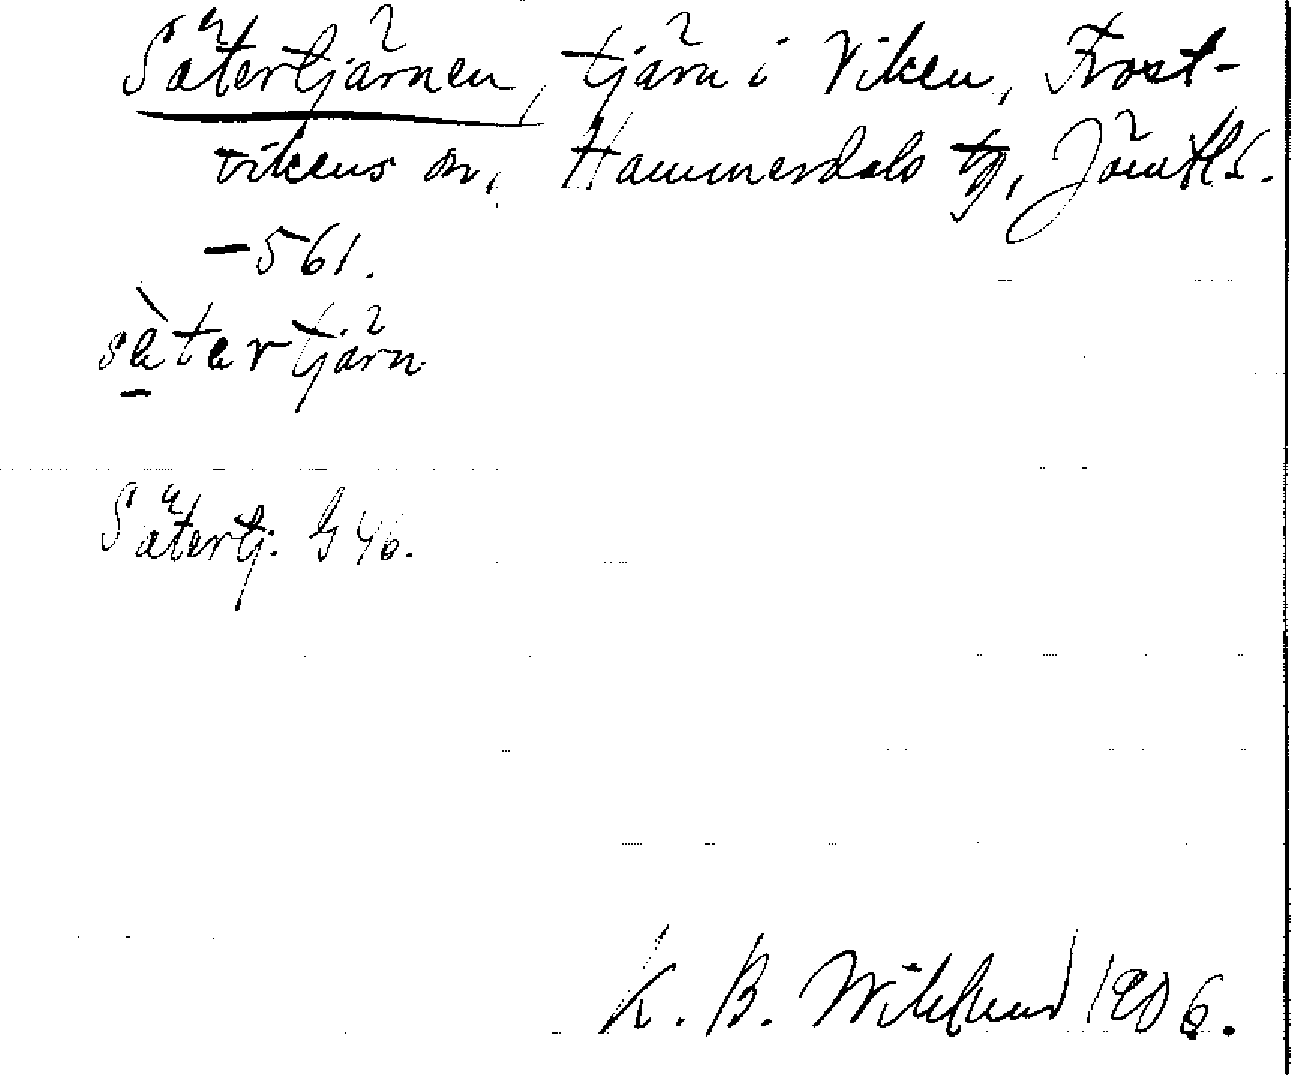 Sätertjärnen, tjärn i Viken, Frost-
vikens sn, Hammerdals tg, Jämtl.
-561.
sätertjärn
Sätertj. G 46.
K. B. Wiklund 1906.